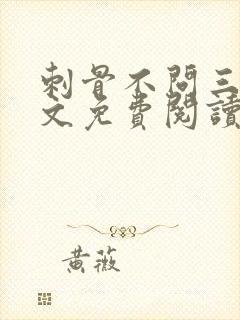 刺骨不問三
文免費閱讀
黃薇